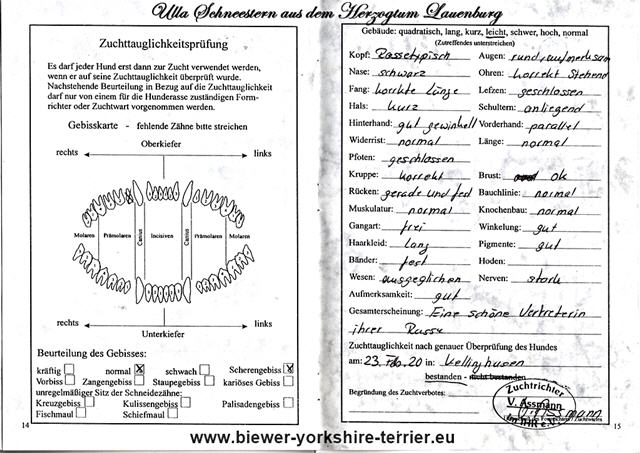 Ulla Schneestern aus dem Herzogtum Lauenburg
Zuchttauglichkeitsprüfung
Es darf jeder Hund erst dann zur Zucht verwendet werden,
wenn er auf seine Zuchttauglichkeit überprüft wurde.
Nachstehende Beurteilung in Bezug auf die Zuchttauglichkeit
darf nur von einem für die Hunderasse zuständigen Form-
richter oder Zuchtwart vorgenommen werden.
Gebisskarte - fehlende Zähne bitte streichen
Oberkiefer
rechts links
Molaren Prämolaren Canius Incisiven Canius Prämolaren Molaren
rechts links
Unterkiefer
Beurteilung des Gebisses:
kräftig normal X schwach Scherengebiss X
Vorbiss Zangengebiss Staupegebiss kariöses Gebiss
unregelmäßiger Sitz der Schneidezähne:
Kreuzgebiss Kulissengebiss Palisadengebiss
Fischmaul Schiefmaul
14
Gebäude: quadratisch, lang, kurz, leicht, schwer, hoch, normal
(Zutreffendes unterstreichen)
Kopf: Rassetypisch Augen: rund, aufmerksam
Nase: schwarz Ohren: korrekt stehend
Fang: korrekte Länge Lefzen: geschlossen
Hals: kurz Schultern: anliegend
Hinterhand: gut gewinkelt Vorderhand: parallel
Widerrist: normal Länge: normal
Pfoten: geschlossen
Kruppe: korrekt Brust: ok
Rücken: gerade und fest Bauchlinie: normal
Muskulatur: normal Knochenbau: normal
Gangart: frei Winkelung: gut
Haarkleid: lang Pigmente: gut
Bänder: fest Hoden:
Wesen: ausgeglichen Nerven: stark
Aufmerksamkeit: gut
Gesamterscheinung: Eine schöne Vertreterin
ihrer Rasse
Zuchttauglichkeit nach genauer Überprüfung des Hundes
am: 23. Feb. 20 in: Kellinghusen
bestanden - nicht bestanden
Begründung des Zuchtverbotes:
Zuchtrichter
V. Assmann
15
www.biewer-yorkshire-terrier.eu